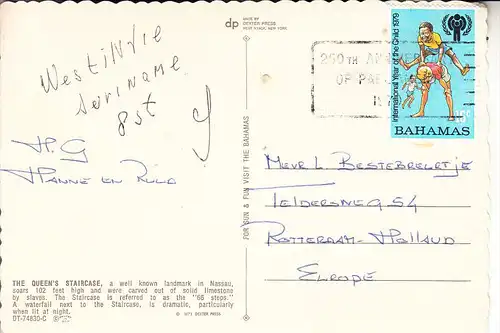 dp
MADE BY
DEXTER PRESS
WEST NYACK, NEW YORK
West iNdie
Suriname
8st
H.G
Hanne en Ruud
THE QUEEN'S STAIRCASE, a well known landmark in Nassau,
soars 102 feet high and were carved out of solid limestone
by slaves. The Staircase is referred to as the "66 steps."
A waterfall next to the Staircase, is dramatic, particularly
when lit at night.
DT-74830-C
© 1971 DEXTER PRESS
FOR SUN & FUN VISIT THE BAHAMAS
250TH
OF
International Year of the Child 1979
15c
BAHAMAS
Mevr L Bestebreurtje
Teldersweg 54
Rotterdam-Holland
Europe